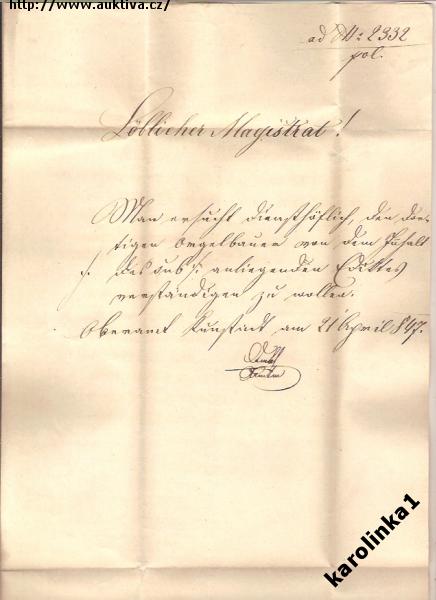 http://www.auktiva.cz/
ad No 2332
pol.
Löblicher Magistrat!
Man ersucht diensthöflich, den dor-
tigen Orgelbauer von dem Inhalt
des sub /. anliegenden Ediktes
verständigen zu wollen.
Oberamt Kunstadt am 21 April 847.
karolinka1